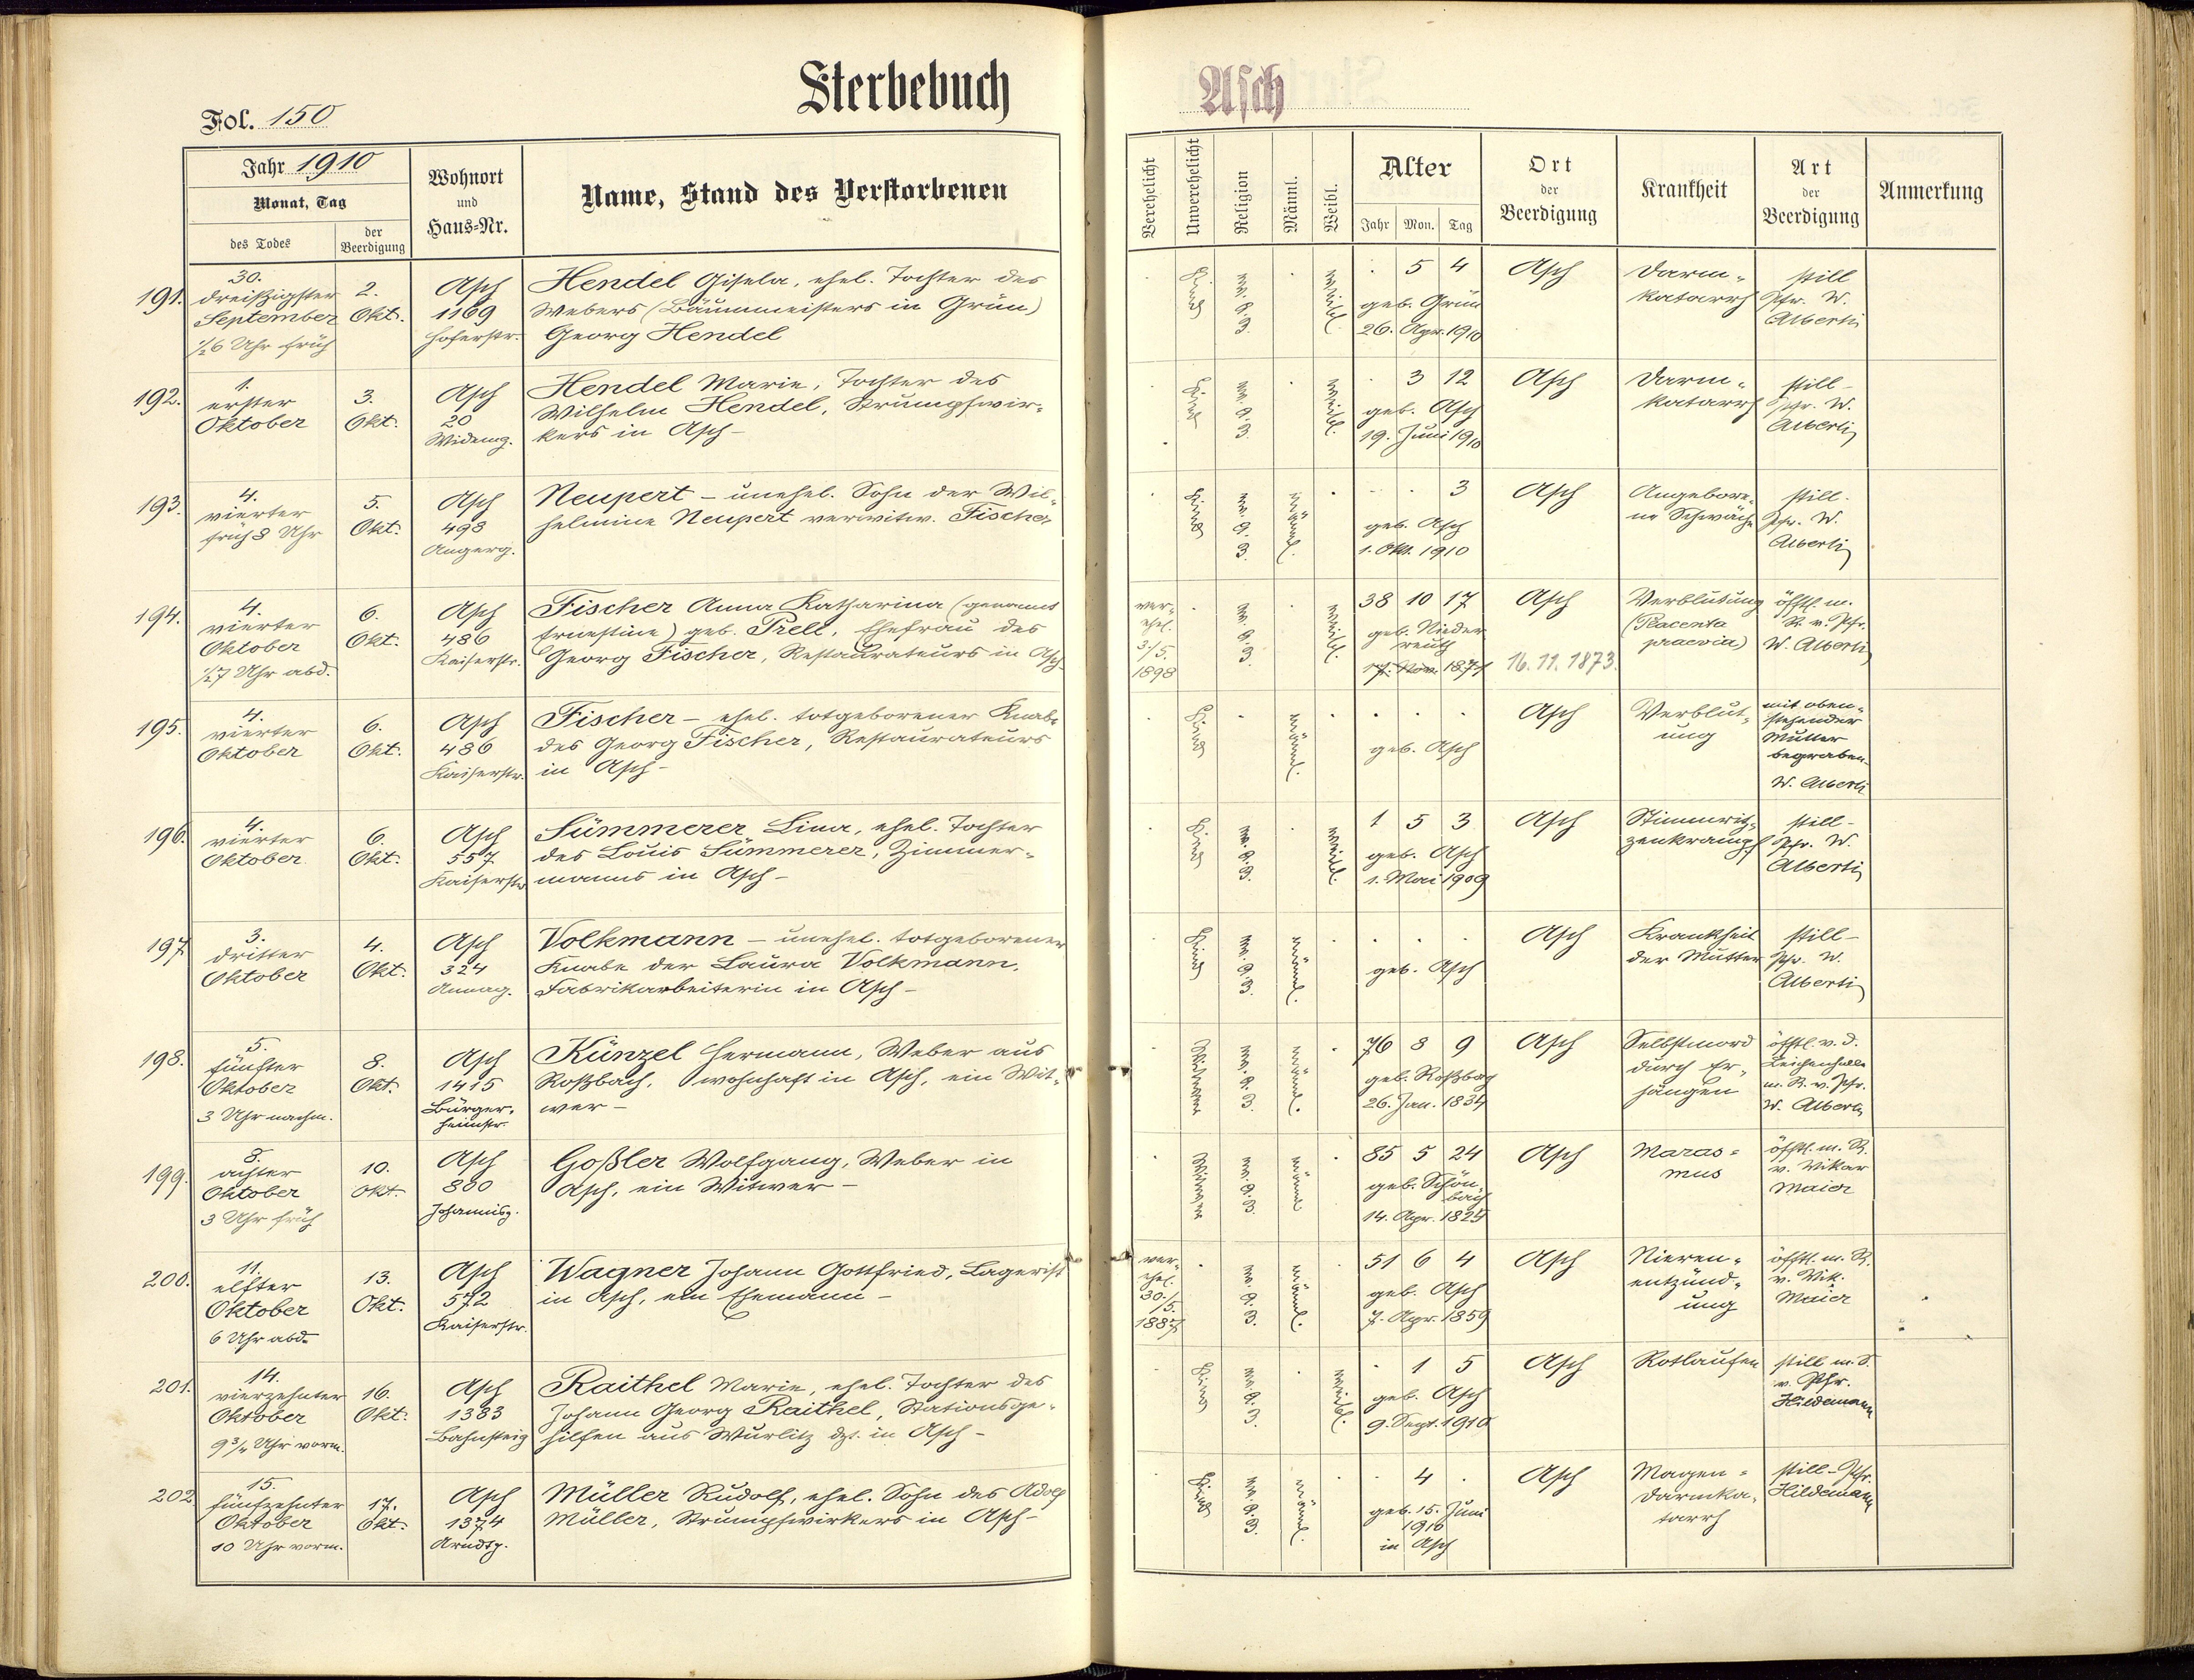 Sterbebuch
Asch
Fol. 150
Jahr 1910
Monat, Tag
des Todes
der Beerdigung
Wohnort
und
Haus-Nr.
Name, Stand des Verstorbenen
Verehelicht
Unverehelicht
Religion
Männl.
Weibl.
Alter
Jahr
Mon.
Tag
Ort
der
Beerdigung
Krankheit
Art
der
Beerdigung
Anmerkung
191.
30.
dreißigster
September
½6 Uhr früh
2.
Okt.
Asch
1169
Hoferstr.
Hendel Gisela, ehel. Tochter des
Webers (Bäummeisters in Grün)
Georg Hendel
Kind
ev. A. B.
weibl.
5 4
geb. Grün
26. Apr. 1910
Asch
Darm-
katarrh
still
Pfr. W.
Alberti
192.
1.
erster
Oktober
3.
Okt.
Asch
20
Widemg.
Hendel Marie, Tochter des
Wilhelm Hendel, Strumpfwir-
kers in Asch-
Kind
ev. A. B.
weibl.
3 12
geb. Asch
19. Juni 1910
Asch
Darm-
katarrh
still-
Pfr. W.
Alberti
193.
4.
vierter
früh 8 Uhr
5.
Okt.
Asch
498
Angerg.
Neupert - unehel. Sohn der Wil-
helmine Neupert verwitw. Fischer
Kind
ev. A. B.
männl.
3
geb. Asch
1. Okt. 1910
Asch
Angebore-
ne Schwäche
still-
Pfr. W.
Alberti
194.
4.
vierter
Oktober
½7 Uhr abd.
6.
Okt.
Asch
486
Kaiserstr.
Fischer Anna Katharina (genannt
Ernestine) geb. Prell, Ehefrau des
Georg Fischer, Restaurateurs in Asch
ver-
ehel.
3/5.
1898
ev. A. B.
weibl.
38 10 17
geb. Nieder
reuth
17. Nov. 1871
16. 11. 1873.
Asch
Verblutung
(Placenta
praevia)
öfftl. m.
R. v. Pfr.
W. Alberti
195.
4.
vierter
Oktober
6.
Okt.
Asch
486
Kaiserstr.
Fischer - ehel. totgeborener Knabe
des Georg Fischer, Restaurateurs
in Asch-
Kind
männl.
geb. Asch
Asch
Verblut-
ung
mit oben-
stehender
Mutter
begraben-
W. Alberti
196.
4.
vierter
Oktober
6.
Okt.
Asch
557
Kaiserstr.
Sümmerer Lina, ehel. Tochter
des Louis Sümmerer, Zimmer-
manns in Asch-
Kind
ev. A. B.
weibl.
1 5 3
geb. Asch
1. Mai 1909
Asch
Stimmrit-
zenkrampf
still-
Pfr. W.
Alberti
197.
3.
dritter
Oktober
4.
Okt.
Asch
324
Annag.
Volkmann - unehel. totgeborener
Knabe der Laura Volkmann,
Fabrikarbeiterin in Asch-
Kind
ev. A. B.
männl.
geb. Asch
Asch
Krankheit
der Mutter
still-
Pfr. W.
Alberti
198.
5.
fünfter
Oktober
3 Uhr nachm.
8.
Okt.
Asch
1415
Bürger-
heimstr.
Künzel Hermann, Weber aus
Roßbach, wohnhaft in Asch, ein Wit-
wer-
Witwer
ev. A. B.
männl.
76 8 9
geb. Roßbach
26. Jan. 1834
Asch
Selbstmord
durch Er-
hängen
öfftl. v. d.
Leichenhalle
m. R. v. Pfr.
W. Alberti
199.
8.
achter
Oktober
3 Uhr früh
10.
Okt.
Asch
800
Johannisg.
Goßler Wolfgang, Weber in
Asch, ein Witwer-
Witwer
ev. A. B.
männl
85 5 24
geb. Schön-
bach
14. Apr. 1825
Asch
Maras-
mus
öfftl. m. R.
v. Vikar
Maier
200.
11.
elfter
Oktober
6 Uhr abd.
13.
Okt.
Asch
572
Kaiserstr.
Wagner Johann Gottfried, Lagerist
in Asch, ein Ehemann-
ver-
ehel.
30./
5.
1887
ev. A. B.
männl.
51 6 4
geb. Asch
7. Apr. 1859
Asch
Nieren-
entzünd-
ung
öfftl. m. R.
v. Vik.
Maier
201.
14.
vierzehnter
Oktober
9¾ Uhr vorm.
16.
Okt.
Asch
1383
Bahnsteig
Raithel Marie, ehel. Tochter des
Johann Georg Raithel, Stationsge-
hilfen aus Wurlitz dzt. in Asch-
Kind
ev. A. B.
weibl.
1 5
geb. Asch
9. Sept. 1910
Asch
Rotlaufen
still m. S.
v. Pfr.
Hildemann
202
15.
fünfzehnter
Oktober
10 Uhr vorm.
17.
Okt.
Asch
1374
Arndtg.
Müller Rudolf, ehel. Sohn des Adolf
Müller, Strumpfwirkers in Asch-
Kind
ev. A. B.
männl.
4
geb. 15. Juni
1910
in Asch
Asch
Magen-
darmka-
tarrh
still-Pfr.
Hildemann